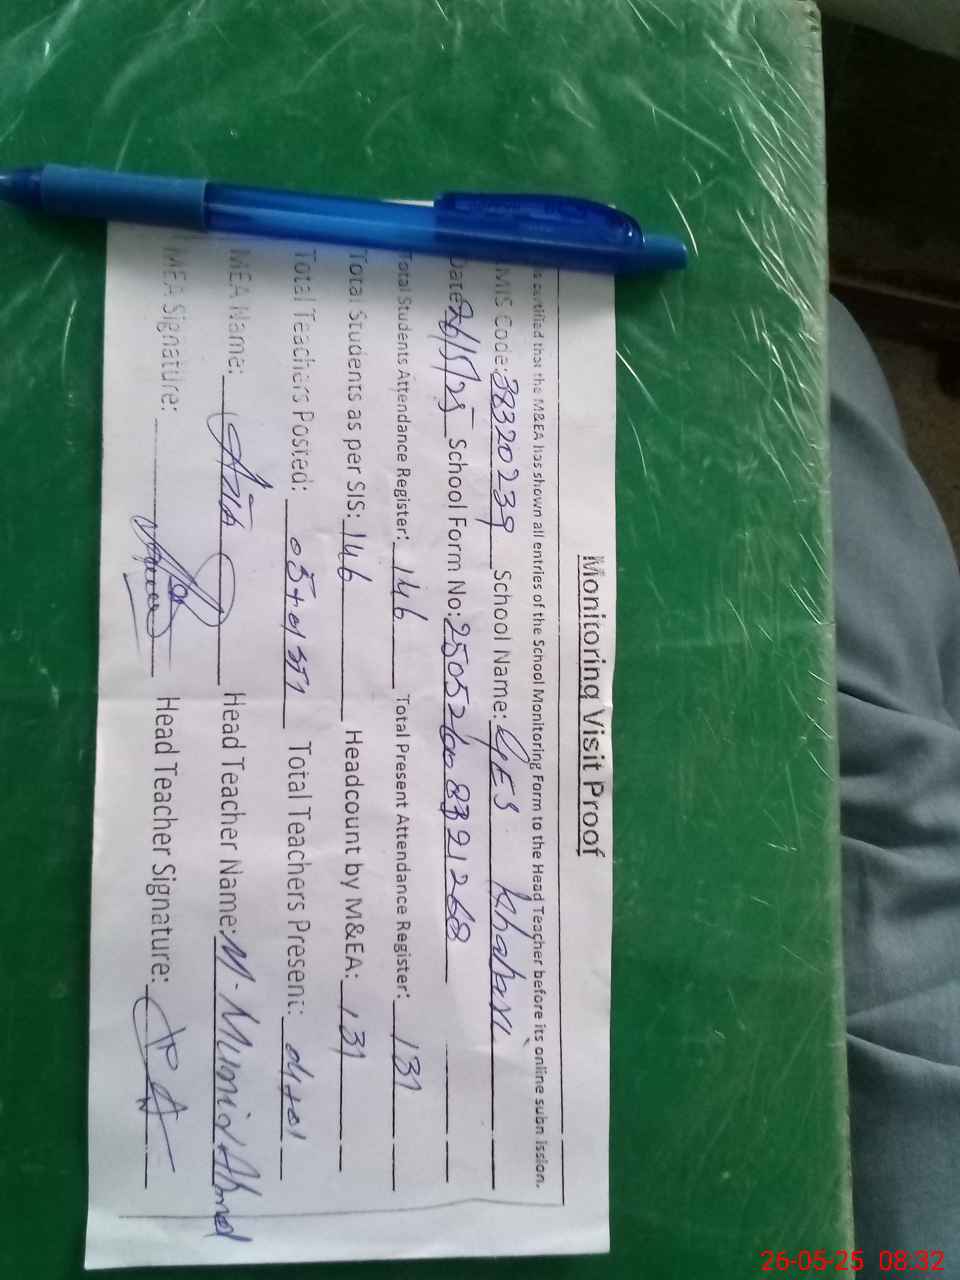 Monitoring Visit Proof
is certified that the M&EA has shown all entries of the School Monitoring Form to the Head Teacher before its online submission.
MIS Code: 38320239 School Name: GES Khahani
Date: 26/5/25 School Form No: 2505260838321268
Total Students Attendance Register: 146 Total Present Attendance Register: 131
Total Students as per SIS: 146 Headcount by M&EA: 131
Total Teachers Posted: 05+01 Total Teachers Present: 04+01
MEA Name: Head Teacher Name: M. Munid Ahmd
MEA Signature: Head Teacher Signature:
26-05-25 08:32